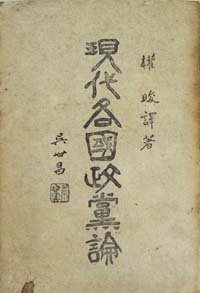 權晙譯著
現代各國政黨論
吳世昌